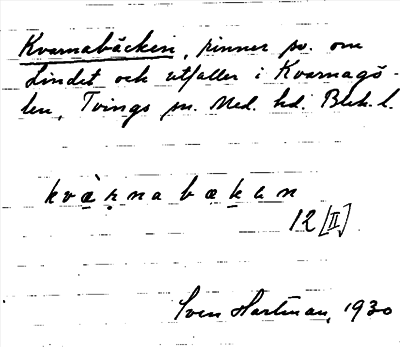 Kvarnabäcken, rinner sv. om
Lindet och utfaller i Kvarnagö-
len, Tvings sn. Med. hd. Blek. l.
kvàrnabækan
12 [II]
Sven Hartman, 1930